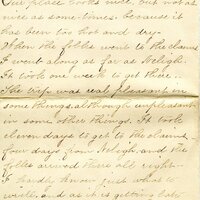 Our place looks nice, but not as
nice as some times, because it
has been too hot and dry.
When the folks went to the claim
I went along as far as Neligh.
It took one week to get there.
The trip was real pleasant in
some things, although unpleasant
in some other things. It took
eleven days to get to the claim
four days from Neligh, and the
folks arrived there all right.
I hardly know just what to
write, and as it is getting late